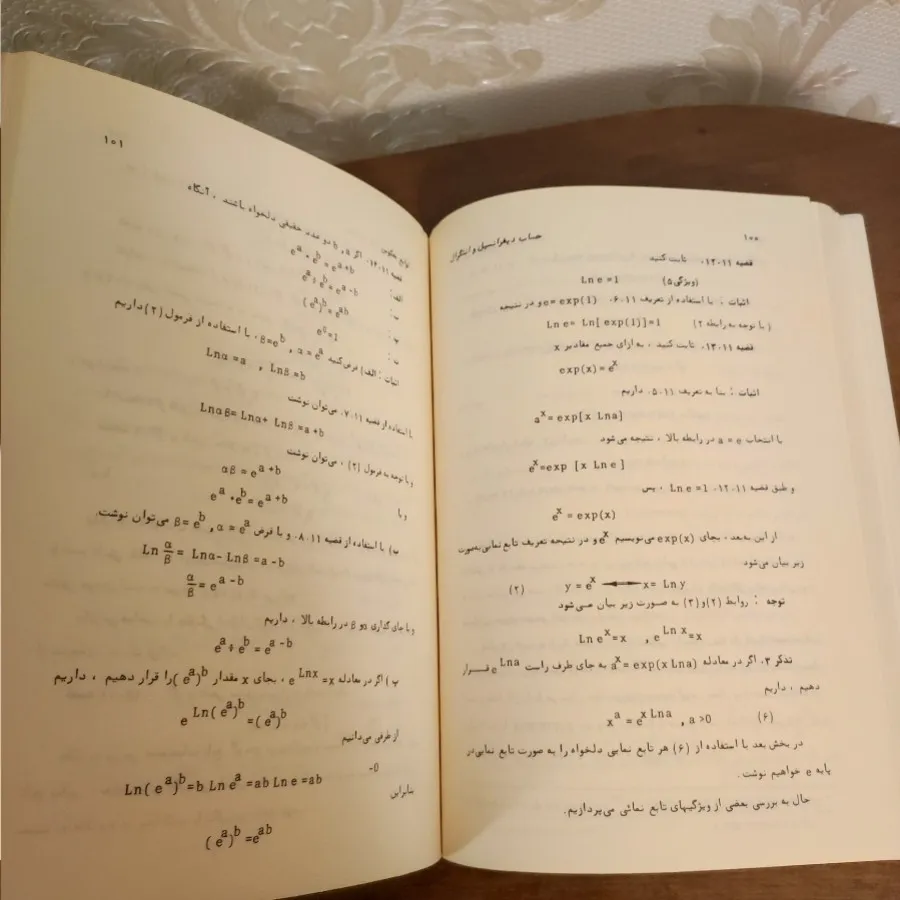 ۱۰۰
حساب دیفرانسیل و انتگرال
قضیه ۱۲.۱۱. ثابت کنید
Ln e =1 (ویژگی ۵)
اثبات : با استفاده از تعریف ۶.۰۱۱ e= exp(1) و در نتیجه
Ln e= Ln[ exp(1)]=1 ( با توجه به رابطه ۲
قضیه ۱۳.۱۱. ثابت کنید ، به ازای جمیع مقادیر x
exp(x) = e^x
اثبات : بنا به تعریف ۵.۰۱۱ داریم
a^x = exp[x Lna]
با انتخاب a = e در رابطه بالا ، نتیجه می‌شود
e^x =exp [x Ln e ]
و طبق قضیه ۱۲.۰۱۱ Ln e =1 ، پس
e^x = exp(x)
از این به‌بعد، بجای exp(x) می‌نویسیم e^x و در نتیجه تعریف تابع نمایی به‌صورت
زیر بیان می‌شود
y = e^x ⟷ x= Ln y (۳)
توجه : روابط (۲) و (۳) به صورت زیر بیان مـی‌شود
Ln e^x =x , e^{Ln x} =x
تذکر ۳. اگر در معادله a^x = exp(x Lna) به جای طرف راست e^{Lna} قــرار
دهیم ، داریم
x^a = e^{x Lna} , a >0 (۶)
در بخش بعد با استفاده از (۶) هر تابع نمایی دلخواه را به صورت تابع نمایی در
پایه e خواهیم نوشت .
حال به بررسی بعضی از ویژگیهای تابع نمائی می‌پردازیم.
۱۰۱
توابع گوناگون
قضیه ۱۴.۰۱۱ اگر b , a دو عدد حقیقی دلخواه باشند ، آنگاه
الف : e^a · e^b = e^{a+b}
ب : e^a ÷ e^b = e^{a-b}
پ : (e^a)^b = e^{ab}
ت : e^0 =1
اثبات : الف) فرض کنید β=e^b , α = e^a ، با استفاده از فرمول (۲) داریم
Lnα =a , Lnβ =b
با استفاده از قضیه ۷.۰۱۱ می‌توان نوشت
Lnαβ= Lnα+ Lnβ =a +b
و با توجه به فرمول (۲) ، می‌توان نوشت
αβ = e^{a+b}
و یا e^a · e^b = e^{a+b}
ب) با استفاده از قضیه ۸.۰۱۱ و با فرض β= e^b , α = e^a می‌توان نوشت.
Ln α/β = Lnα- Lnβ =a -b
α/β = e^{a-b}
و با جای گذاری α و β در رابطه بالا ، داریم
e^a ÷ e^b = e^{a-b}
پ ) اگر در معادله e^{Lnx} =x ، بجای x مقدار (e^a)^b را قرار دهیم ، داریم
e^{Ln(e^a)^b} =(e^a)^b
از طرفی می‌دانیم
Ln(e^a)^b =b Ln e^a =ab Ln e =ab
بنابراین
(e^a)^b =e^{ab}